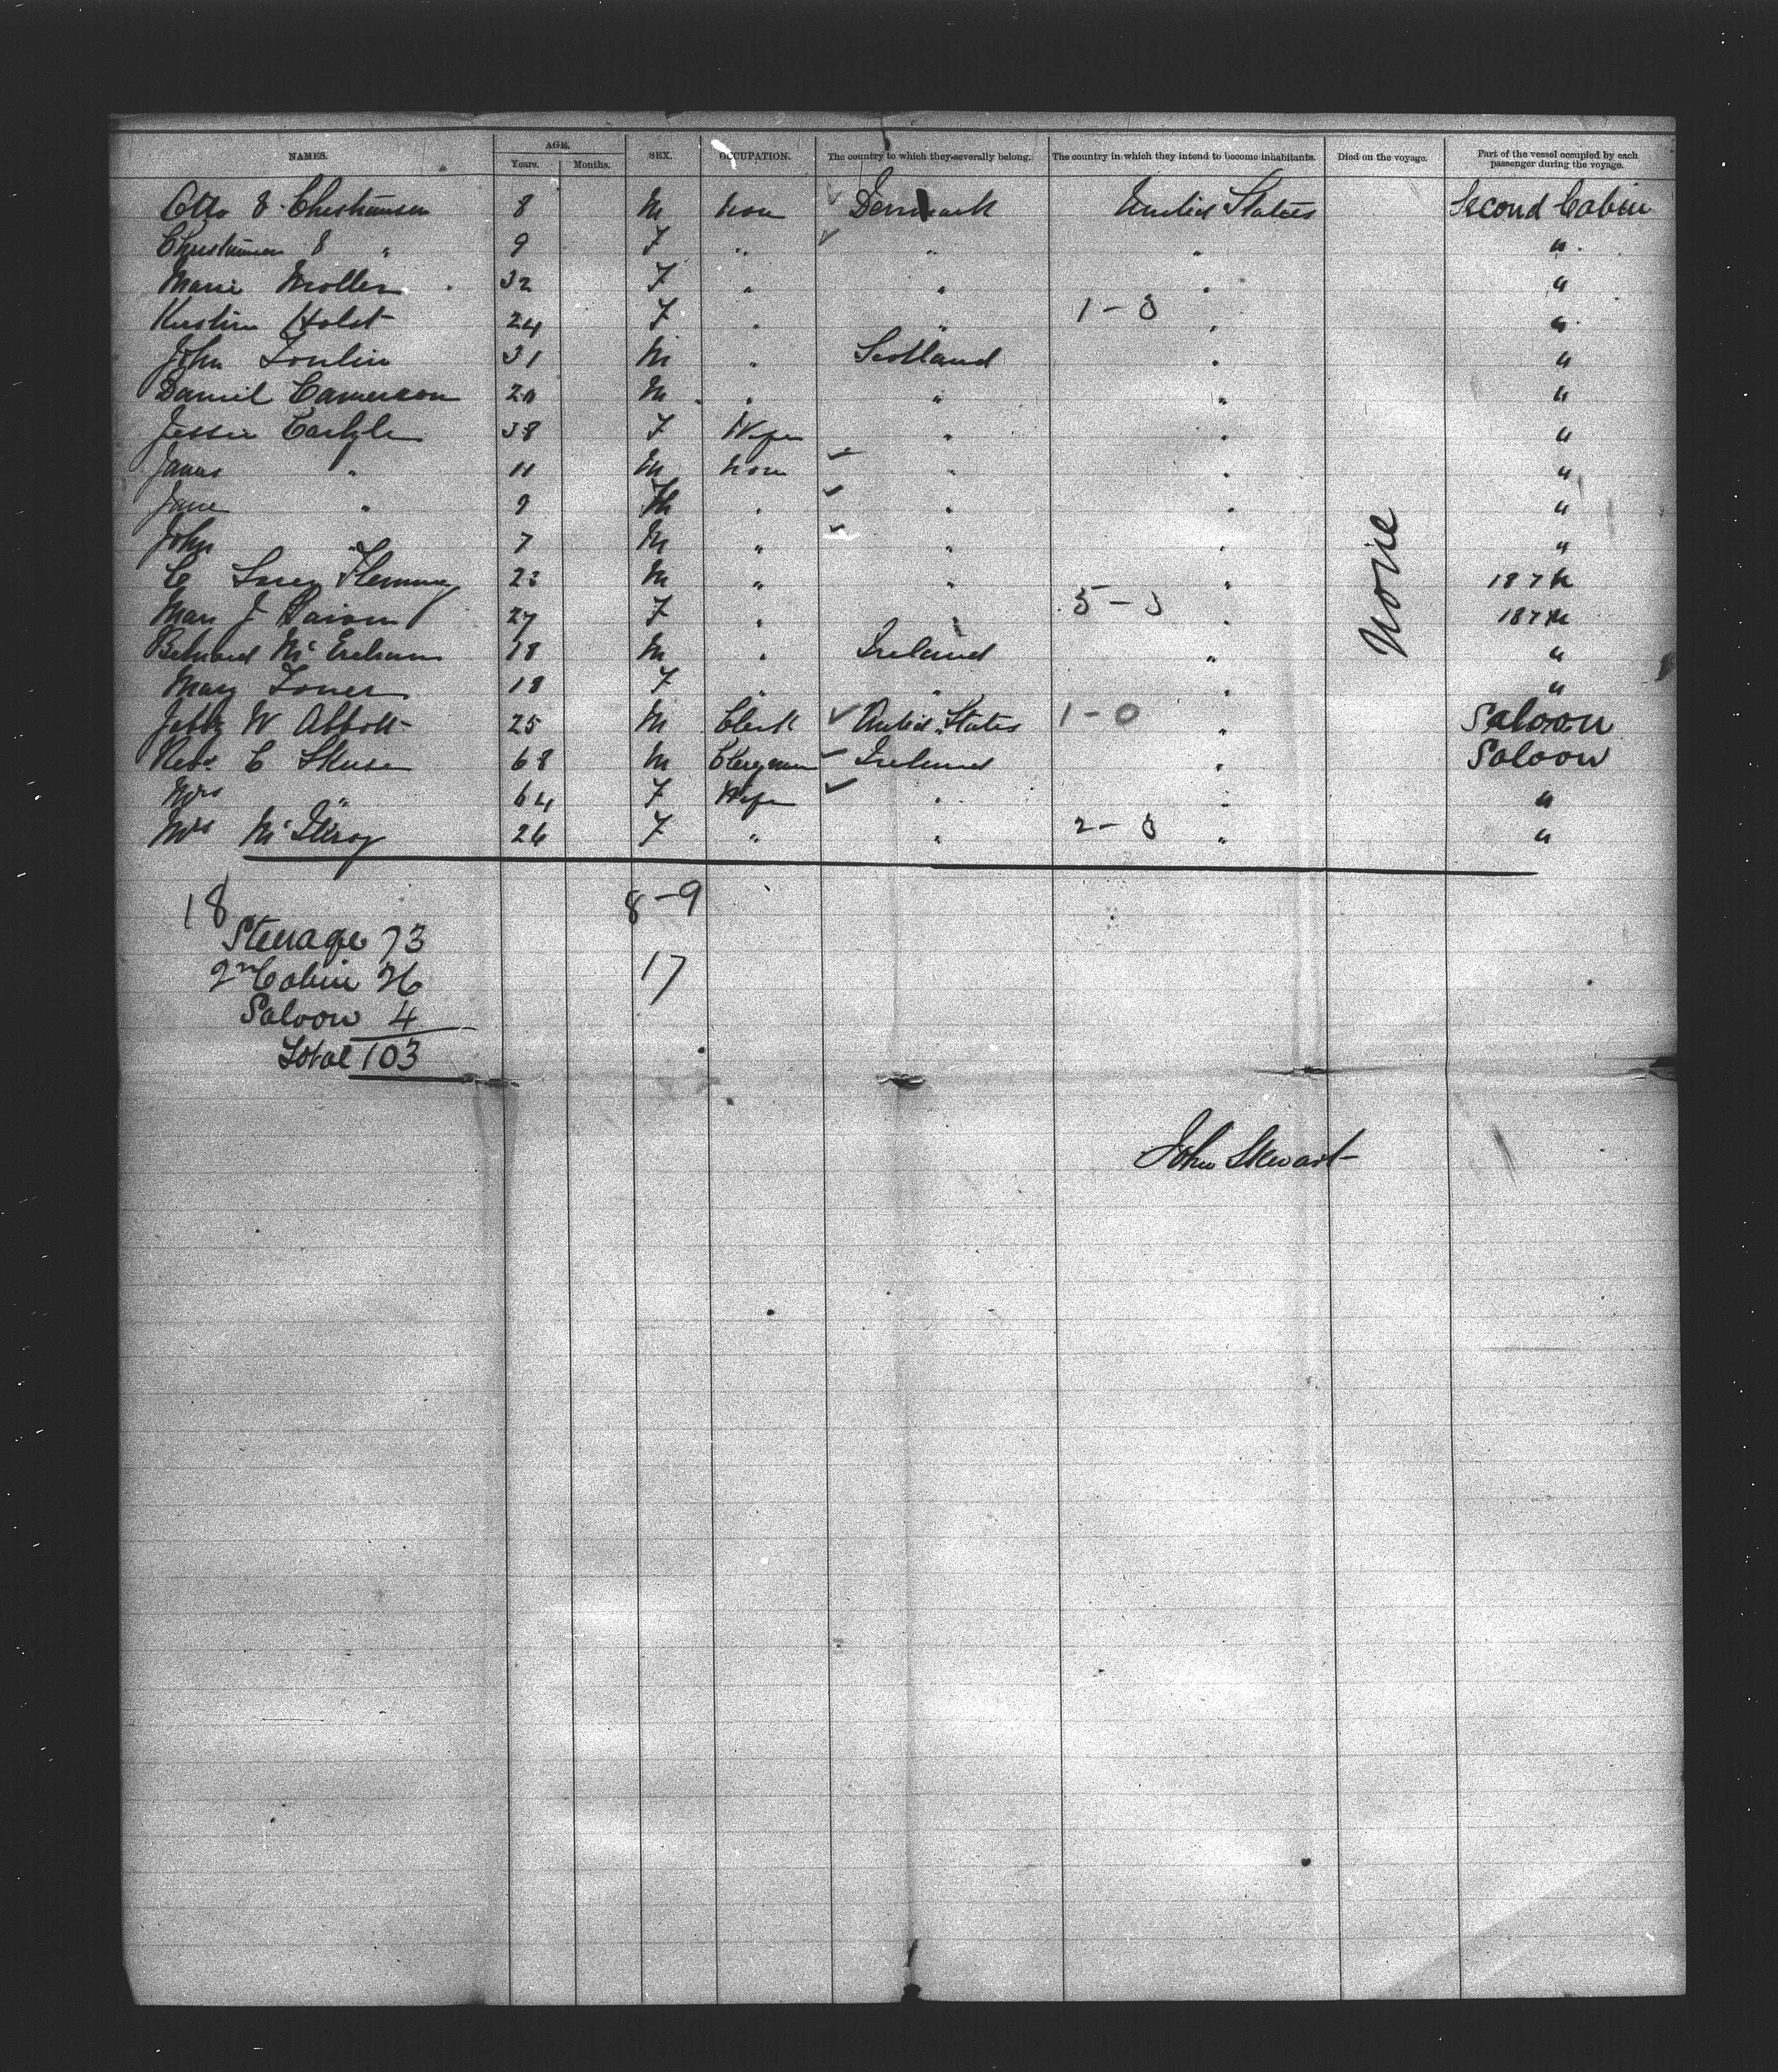 NAMES. AGE. Years. Months. SEX. OCCUPATION. The country to which they severally belong. The country in which they intend to become inhabitants. Died on the voyage. Part of the vessel occupied by each passenger during the voyage.
Otto Christiansen 8 M None Denmark United States Second Cabin
" 9 F " " " "
Marie Moller 32 F " " " "
Kirstine Holst 24 F " " 1-0 " "
John 31 M " Scotland " "
Daniel Cameron 20 M " " " "
Jessie Carlyle 38 F Wife " " "
James " 11 M None " " "
Jane " 9 " " " "
John " 7 M " " " "
C Fleming 23 M " " "
Mary J 27 F " " 5-0 "
Bernard 18 M " Ireland " "
Mary 18 F " " " "
W Abbott 25 M Clerk United States 1-0 " Saloon
Revd C Skuse 68 M Clergyman Ireland " Saloon
Mrs " 64 F Wife " " "
Mrs McIlroy 26 F " " 2-0 " "
None
18 8-9
Steerage 73
2n Cabin 26 17
Saloon 4
Total 103
John Stewart